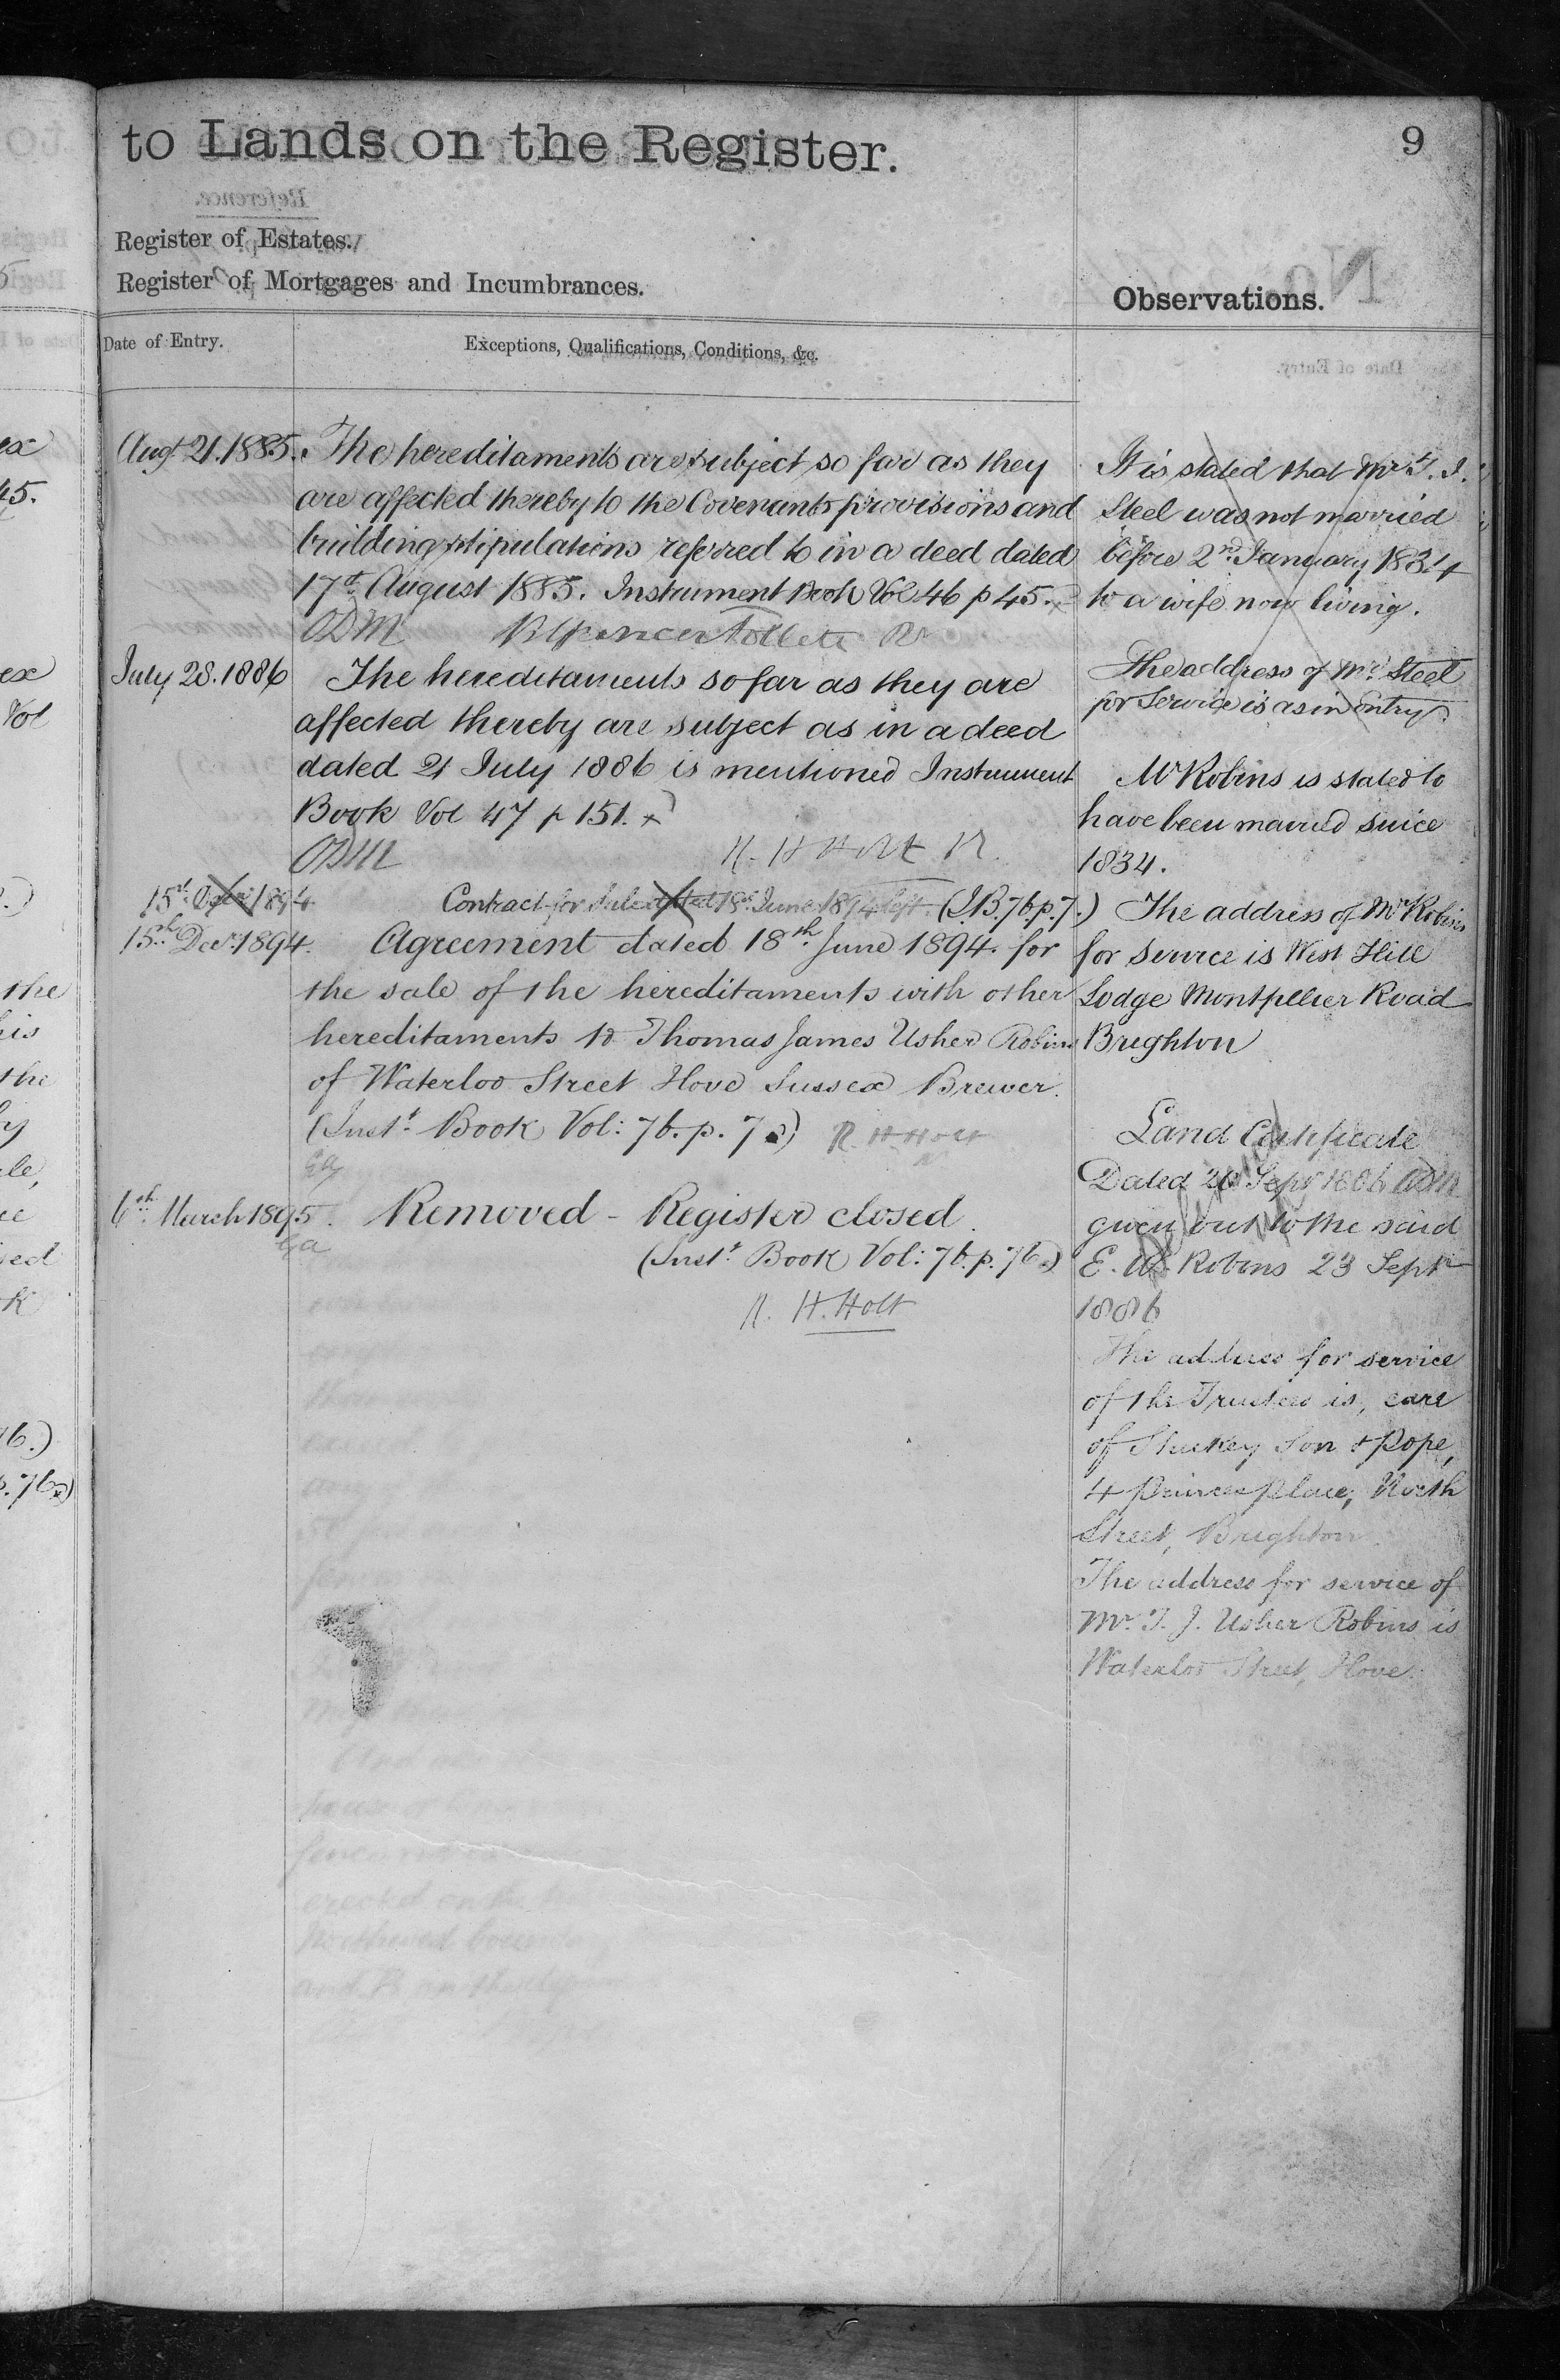 to Lands on the Register.
9
Register of Estates.
Register of Mortgages and Incumbrances.
Observations.
Date of Entry.
Exceptions, Qualifications, Conditions, &c.
Augt 21. 1885.
The hereditaments are subject so far as they
are affected thereby to the Covenants provisions and
building stipulations referred to in a deed dated
17th August 1885. Instrument Book Vol 46 p 45.
ODM
R Spencer Follett Rr
July 28. 1886
The hereditaments so far as they are
affected thereby are subject as in a deed
dated 21 July 1886 is mentioned Instrument
Book Vol 47 p 151.
ODM
R. H Holt R.
15th 1894.
Contract for Sale dated 18th June 1894 left. (I.B. 76. p. 7.)
15th Decr. 1894.
Agreement dated 18th June 1894. for
the sale of the hereditaments with other
hereditaments to Thomas James Usher Robins
of Waterloo Street Hove Sussex Brewer.
(Instt. Book Vol: 76. p. 7.)
R. H Holt
6th March 1895.
Removed - Register closed.
(Instt. Book Vol: 76. p. 76.)
R. H. Holt
It is stated that Mr T. J.
Steel was not married
before 2nd January 1834
to a wife now living.
The address of Mr. Steel
for Service is as in Entry
Mr Robins is stated to
have been married since
1834.
The address of Mr Robins
for service is West Hill
Lodge Montpellier Road
Brighton
Land Certificate
Dated 20 Sepr 1886 ODM
given out to the said
E. W. Robins 23 Septr
1886
The address for service
of the Trustees is, care
of Stuckey Son & Pope,
4 Princes Place, North
Street, Brighton.
The address for service of
Mr. T. J. Usher Robins is
Waterloo Street, Hove.